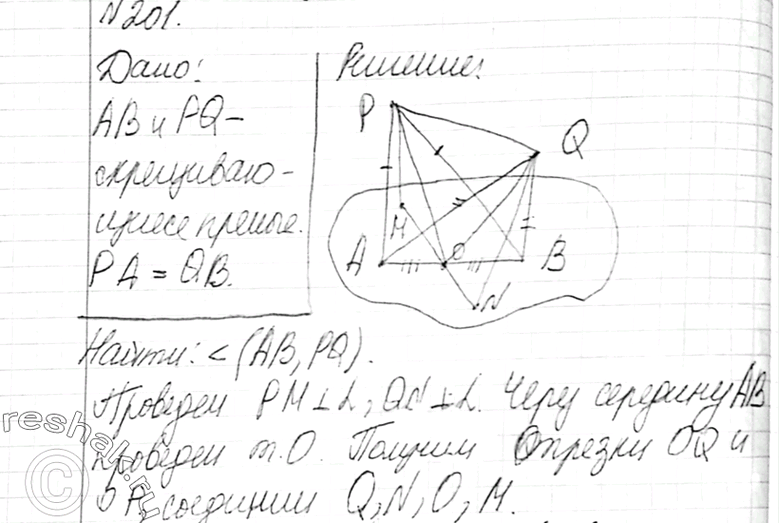 N201.
Дано: Решение:
AB и PQ –
скрещиваю-
щиеся прямые.
PA = QB.
P Q M A O B N
Найти: < (AB, PQ).
Проведем PM ⊥ α, QN ⊥ α. Через середину AB
проведем т.O. Получим отрезки OQ и
OP, соединим Q, N, O, M.
reshak.ru
©